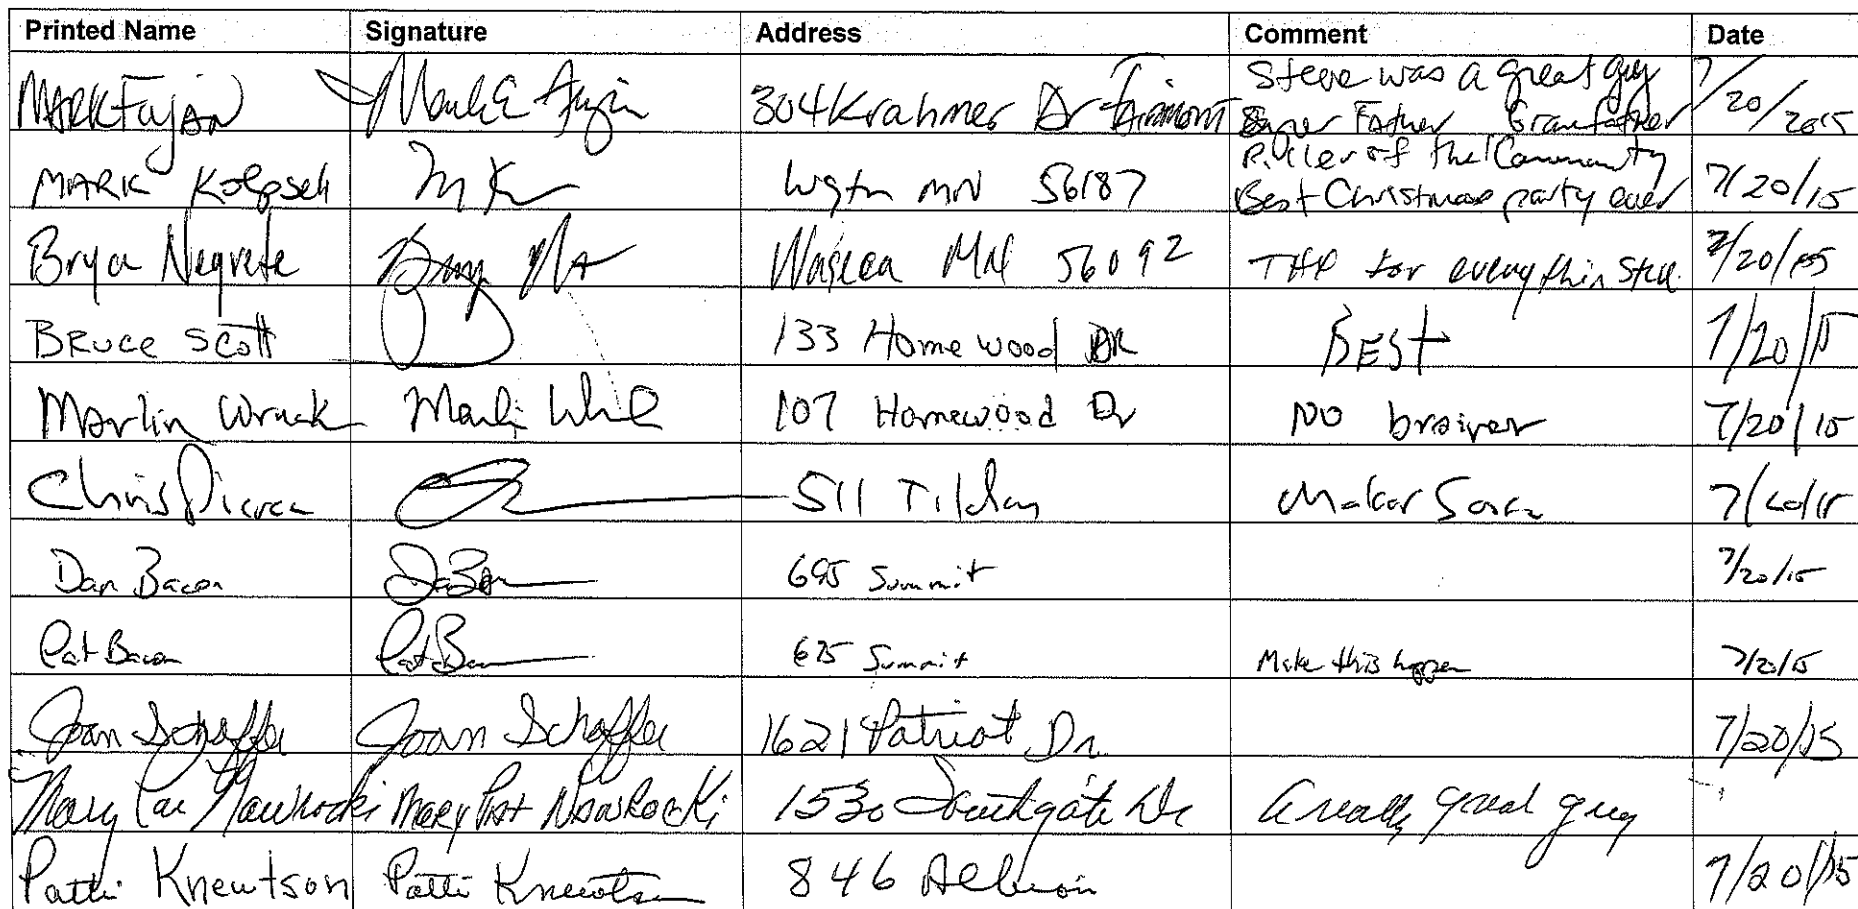 Printed Name Signature Address Comment Date
MARK Fujan Mark E Fujan 304 Krahmer Dr Fairmont Steve was a great guy 7/20/2015
Super Father Grandfather
MARK wgtn MN 56187 Piller of the Community 7/20/15
Best Christmas party ever
Brya Negrete Waseca MN 56092 for everythin 7/20/15
BRUCE Scott 133 Homewood DR BEST 7/20/15
Marlin 107 Homewood Dr NO brainer 7/20/15
Chris Pierce 511 Makes Sense 7/20/15
Dan Bacon 695 Summit 7/20/15
Pat Bacon Pat B 625 Summit Make this happen 7/20/15
Joan Schaffer Joan Schaffer 1621 Patriot Dr. 7/20/15
Mary Pat Nawrocki Mary Pat Nawrocki 1530 Southgate Dr A really great guy
Patti Knewtson Patti Knewtson 846 Albion 7/20/15